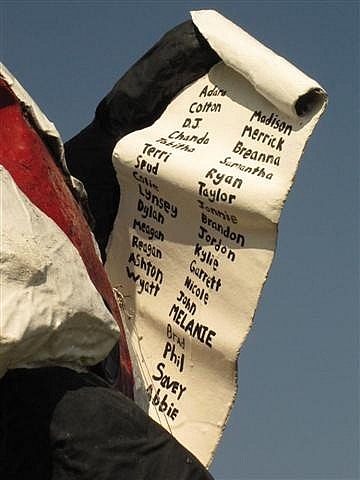 Adam
Colton
DJ
Chanda
Tabitha
Terri
Spud
Callie
Lynsey
Dylan
Meagan
Reagan
Ashton
Wyatt
Madison
Merrick
Breanna
Samantha
Ryan
Taylor
Jannie
Brandon
Jordon
Kylie
Garrett
Nicole
John
MELANIE
Brad
Phil
Savey
Abbie